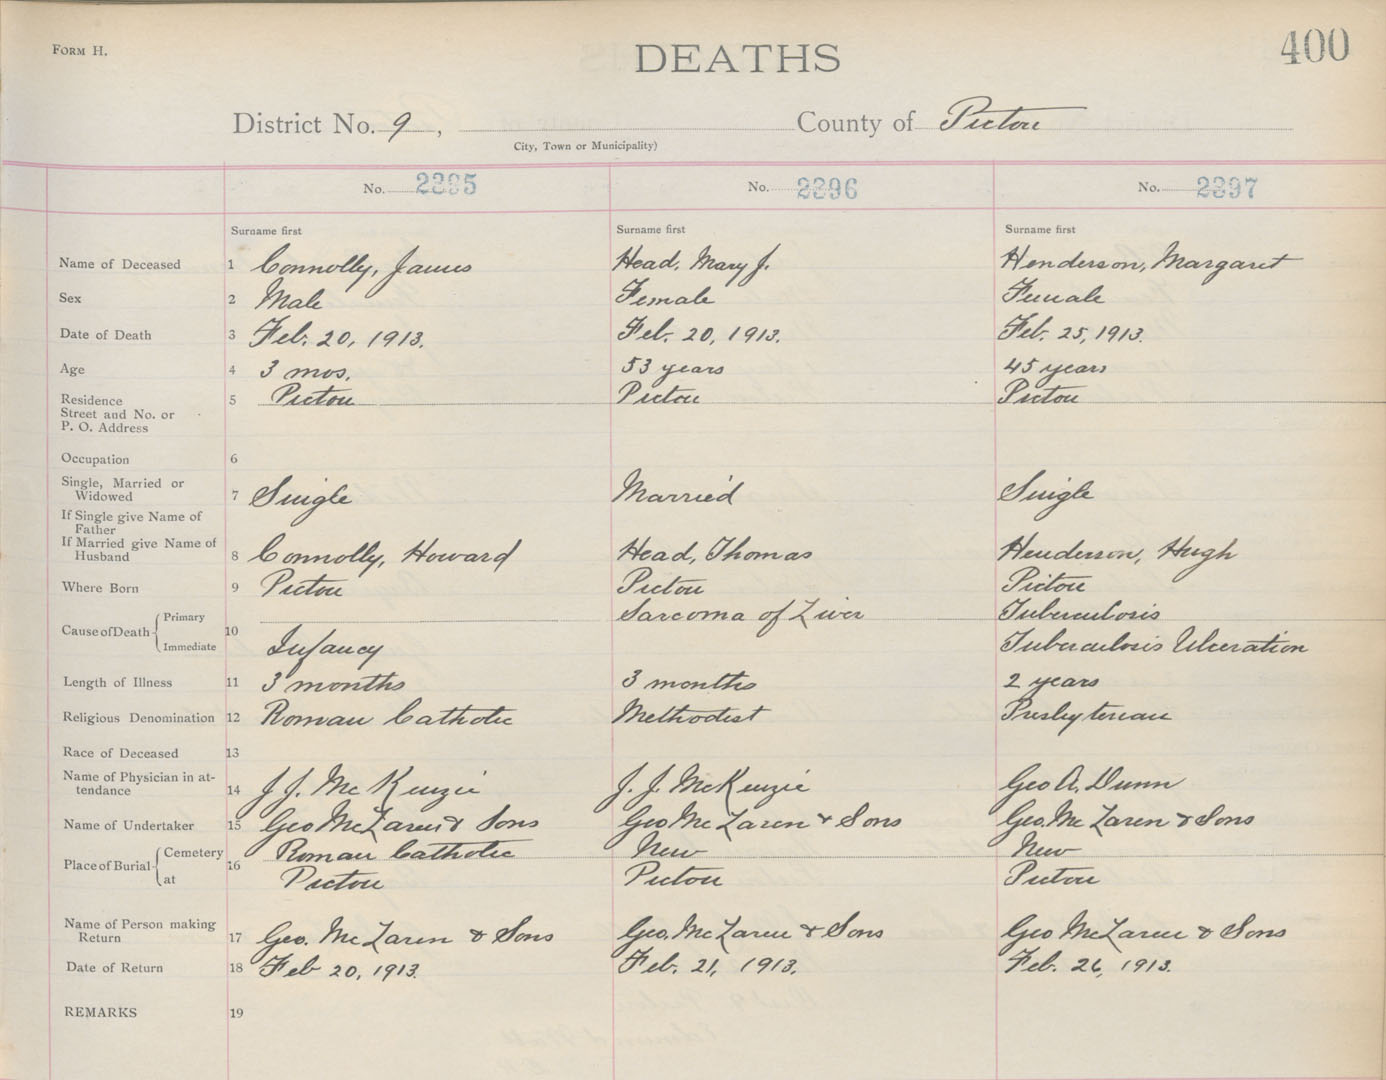 FORM H.
DEATHS
400
District No. 9, County of Pictou
City, Town or Municipality)
No. 2395 No. 2396 No. 2397
Surname first Surname first Surname first
Name of Deceased 1 Connolly, James Head, Mary J. Henderson, Margaret
Sex 2 Male Female Female
Date of Death 3 Feb. 20, 1913. Feb. 20, 1913. Feb. 25, 1913.
Age 4 3 mos. 53 years 45 years
Residence 5 Pictou Pictou Pictou
Street and No. or
P. O. Address
Occupation 6
Single, Married or
Widowed 7 Single Married Single
If Single give Name of
Father
If Married give Name of
Husband 8 Connolly, Howard Head, Thomas Henderson, Hugh
Where Born 9 Pictou Pictou Pictou
Primary Sarcoma of Liver Tuberculosis
Cause of Death 10
Immediate Infancy Tuberculosis Ulceration
Length of Illness 11 3 months 3 months 2 years
Religious Denomination 12 Roman Catholic Methodist Presbyterian
Race of Deceased 13
Name of Physician in at-
tendance 14 J. J. McKenzie J. J. McKenzie Geo A. Dunn
Name of Undertaker 15 Geo McLaren & Sons Geo McLaren & Sons Geo. McLaren & Sons
Cemetery Roman Catholic New New
Place of Burial 16
at Pictou Pictou Pictou
Name of Person making
Return 17 Geo. McLaren & Sons Geo. McLaren & Sons Geo McLaren & Sons
Date of Return 18 Feb 20, 1913. Feb. 21, 1913. Feb. 26, 1913.
REMARKS 19